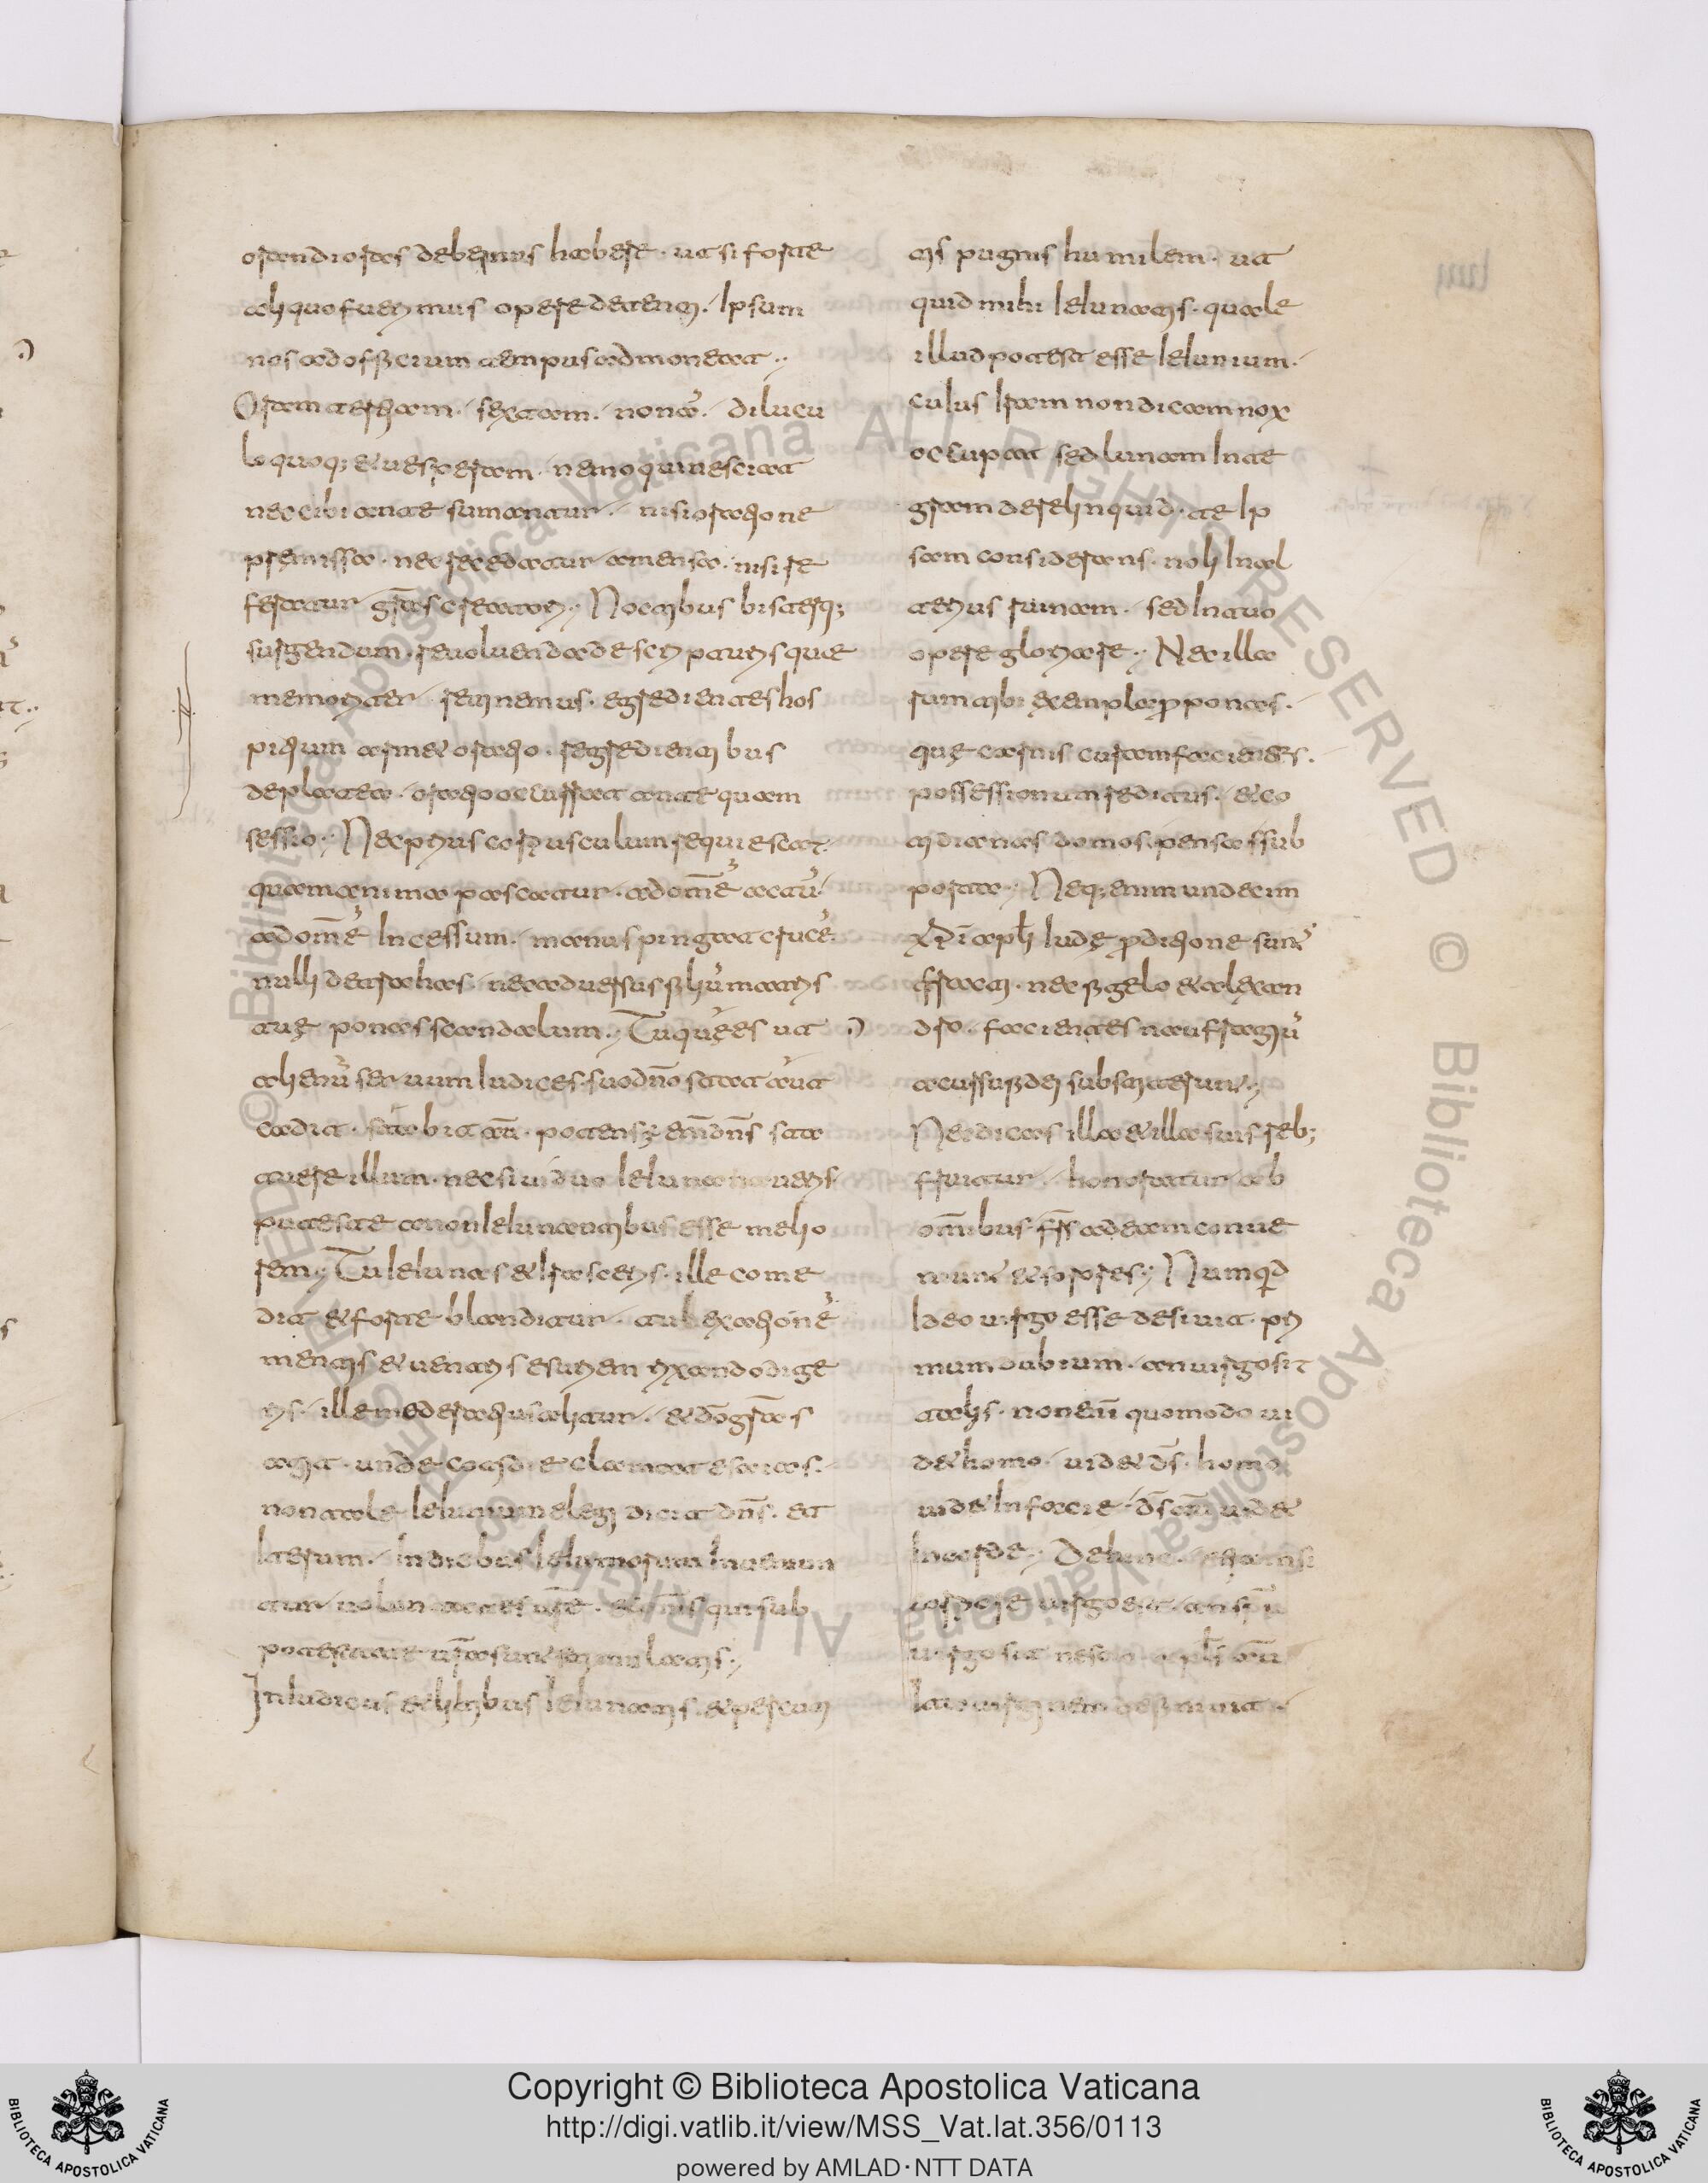 orandi oras debemus habere · ut si forte
aliquo fuerimus opere detenti · Ipsum
nos ad officium tempus admoneat ··
Oram tertiam · sextam · nonā · dilucu
lo quoq; & uesperam · nemo qui nesciat
nec cibi ante sumantur · nisi oratione
premissa · nec recedatur a mensa · nisi re
feratur grās creatori ·, Noctibus bis terq;
surgendum · reuoluenda de scripturis que
memoriter · tenemus · egredientes hos
pitium armet oratio · regredientibus
de platea · oratio occurrat ante quam
sessio ·, Nec prius corpusculum requiescat ·
quam anima pascatur · ad omnē actū ·
ad omnē Incessum · manus pingat crucē ·
nulli detrahas · nec aduersus filiū matris
tuę ponas scandalum ·, Tu quę es ut
alienū seruum Iudices · suo dn̄o stat aut
cadit · stabit aū · potens ē enī dn̄s sta
tuere illum · nec si uiduo Ieiunaueris
putes te a non Ieiunantibus esse melio
rem ·, Tu Ieiunas & Irasceris · ille come
dit & fronte blanditur · tu uexationē
mentis & uentris esuriem rixando dige
ris · ille moderatius alitur · & dō grās
agit · unde cotid·e clamat esaias ·
non tale Ieiunium elegi dicit dn̄s · et
Iterum · In diebus Ieiuniorum Inueniun
tur uoluntates urē · & om̄s qui sub
potestate urā sunt stimulatis ·,
In Iudicus & litibus Ieiunatis · & percuti
tis pugnis humilem · ut
quid mihi Ieiunatis · quale
illud potest esse Ieiunium ·
cuius Iram non dicam nox
occupat sed lunam Inte
gram derelinquid · te Ip
sam considerans · noli In al
terius ruinam · sed In tuo
opere gloriare ·, Nec illa
rum tibi exempla ꝓponas ·
quę carnis curam facientes ·
possessionum reditus · & co
tidianas domos · pensas sub
portat ·, Neq; enim undecim
apl̄i Iudę ꝓditione sunt
fracti · nec figelo & alexan
dro · facientes naufragiū
a cursu fidei substiterunt ·,
Nec dicas illa & illa suis reb;
fruitur · honoratur ab
omnibus · frs ad eam conue
niunt & sorores ·, Numq̄d
Ideo uirgo esse desiuit · pri
mum dubium · an uirgo sit
talis · non enī quomodo ui
det homo · uidet ds̄ · homo
uidet In facie · ds̄ aū uidet
In corde ·, Dehinc · etiam si
corpore uirgo est · an sp̄u
uirgo sit nescio · apl̄s aū
Ita uirginem definiuit ·
Copyright © Biblioteca Apostolica Vaticana
http://digi.vatlib.it/view/MSS_Vat.lat.356/0113
powered by AMLAD·NTT DATA